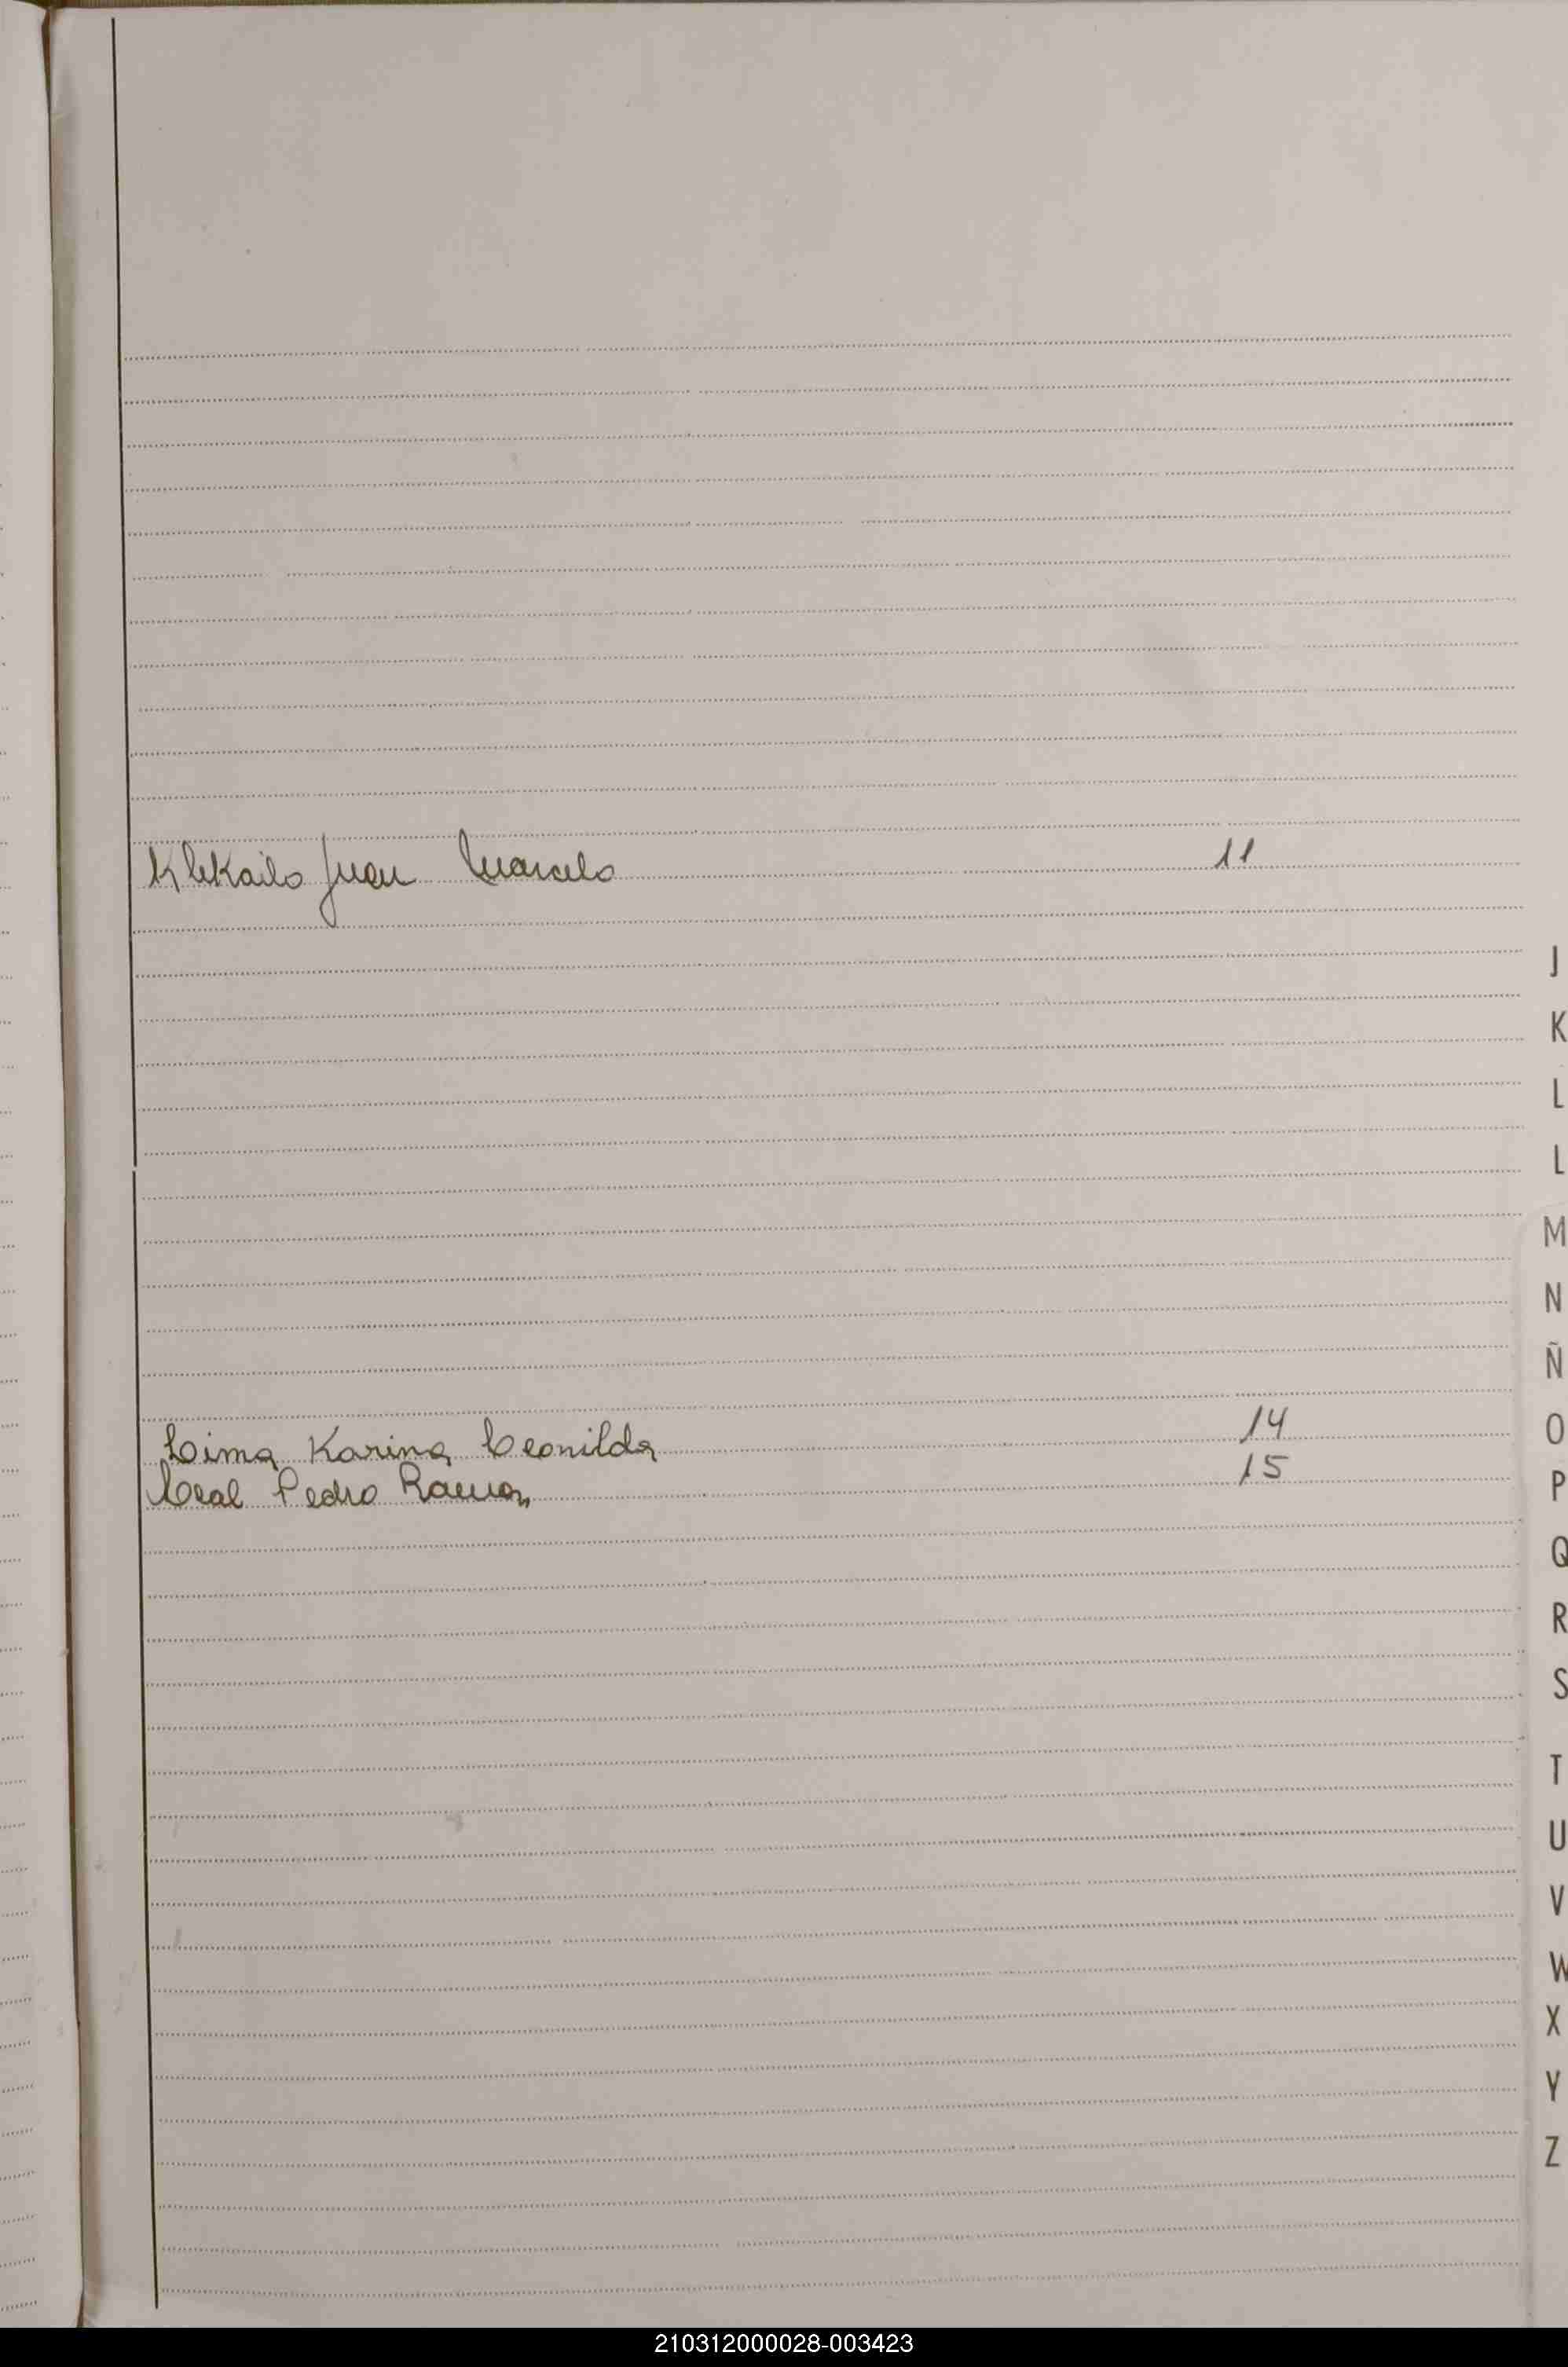 Klekailo Juan Marcelo 11
J
K
L
L
M
N
Ñ
Lima Karina Leonilda 14
O
Leal Pedro Ramon 15
P
Q
R
S
T
U
V
W
X
Y
Z
210312000028-003423